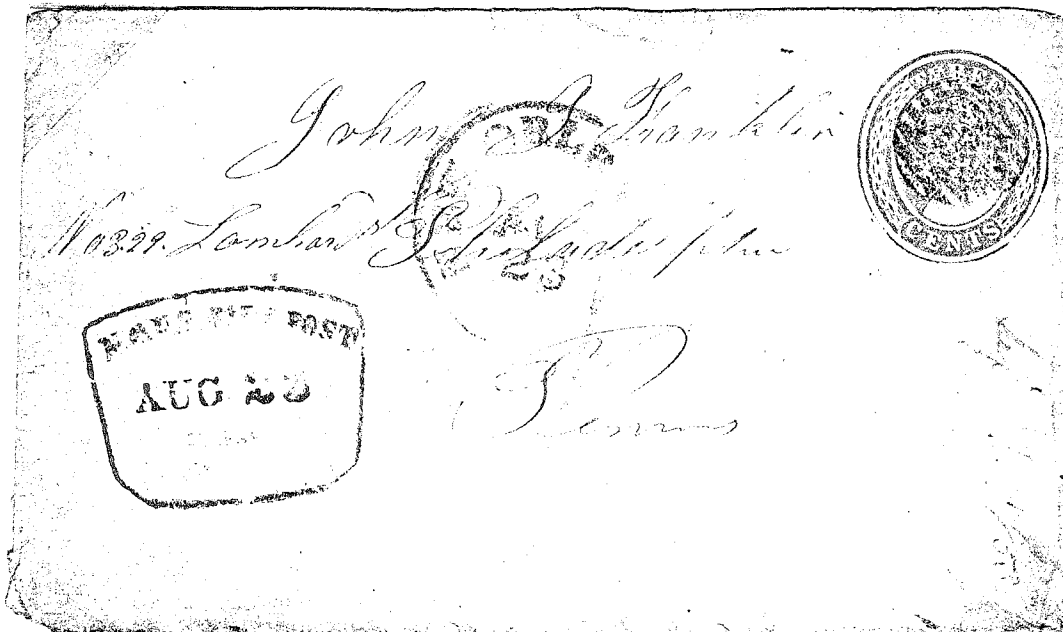 John J Franklin
No 329. Lombard St Philadelphia
Penns
THREE
CENTS
POST
AUG 23
23